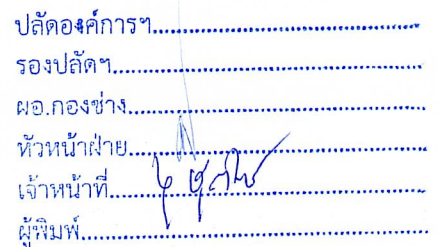 ปลัดองค์การฯ........................................
รองปลัดฯ........................................
ผอ.กองช่าง........................................
หัวหน้าฝ่าย........................................
เจ้าหน้าที่........................................
ผู้พิมพ์........................................